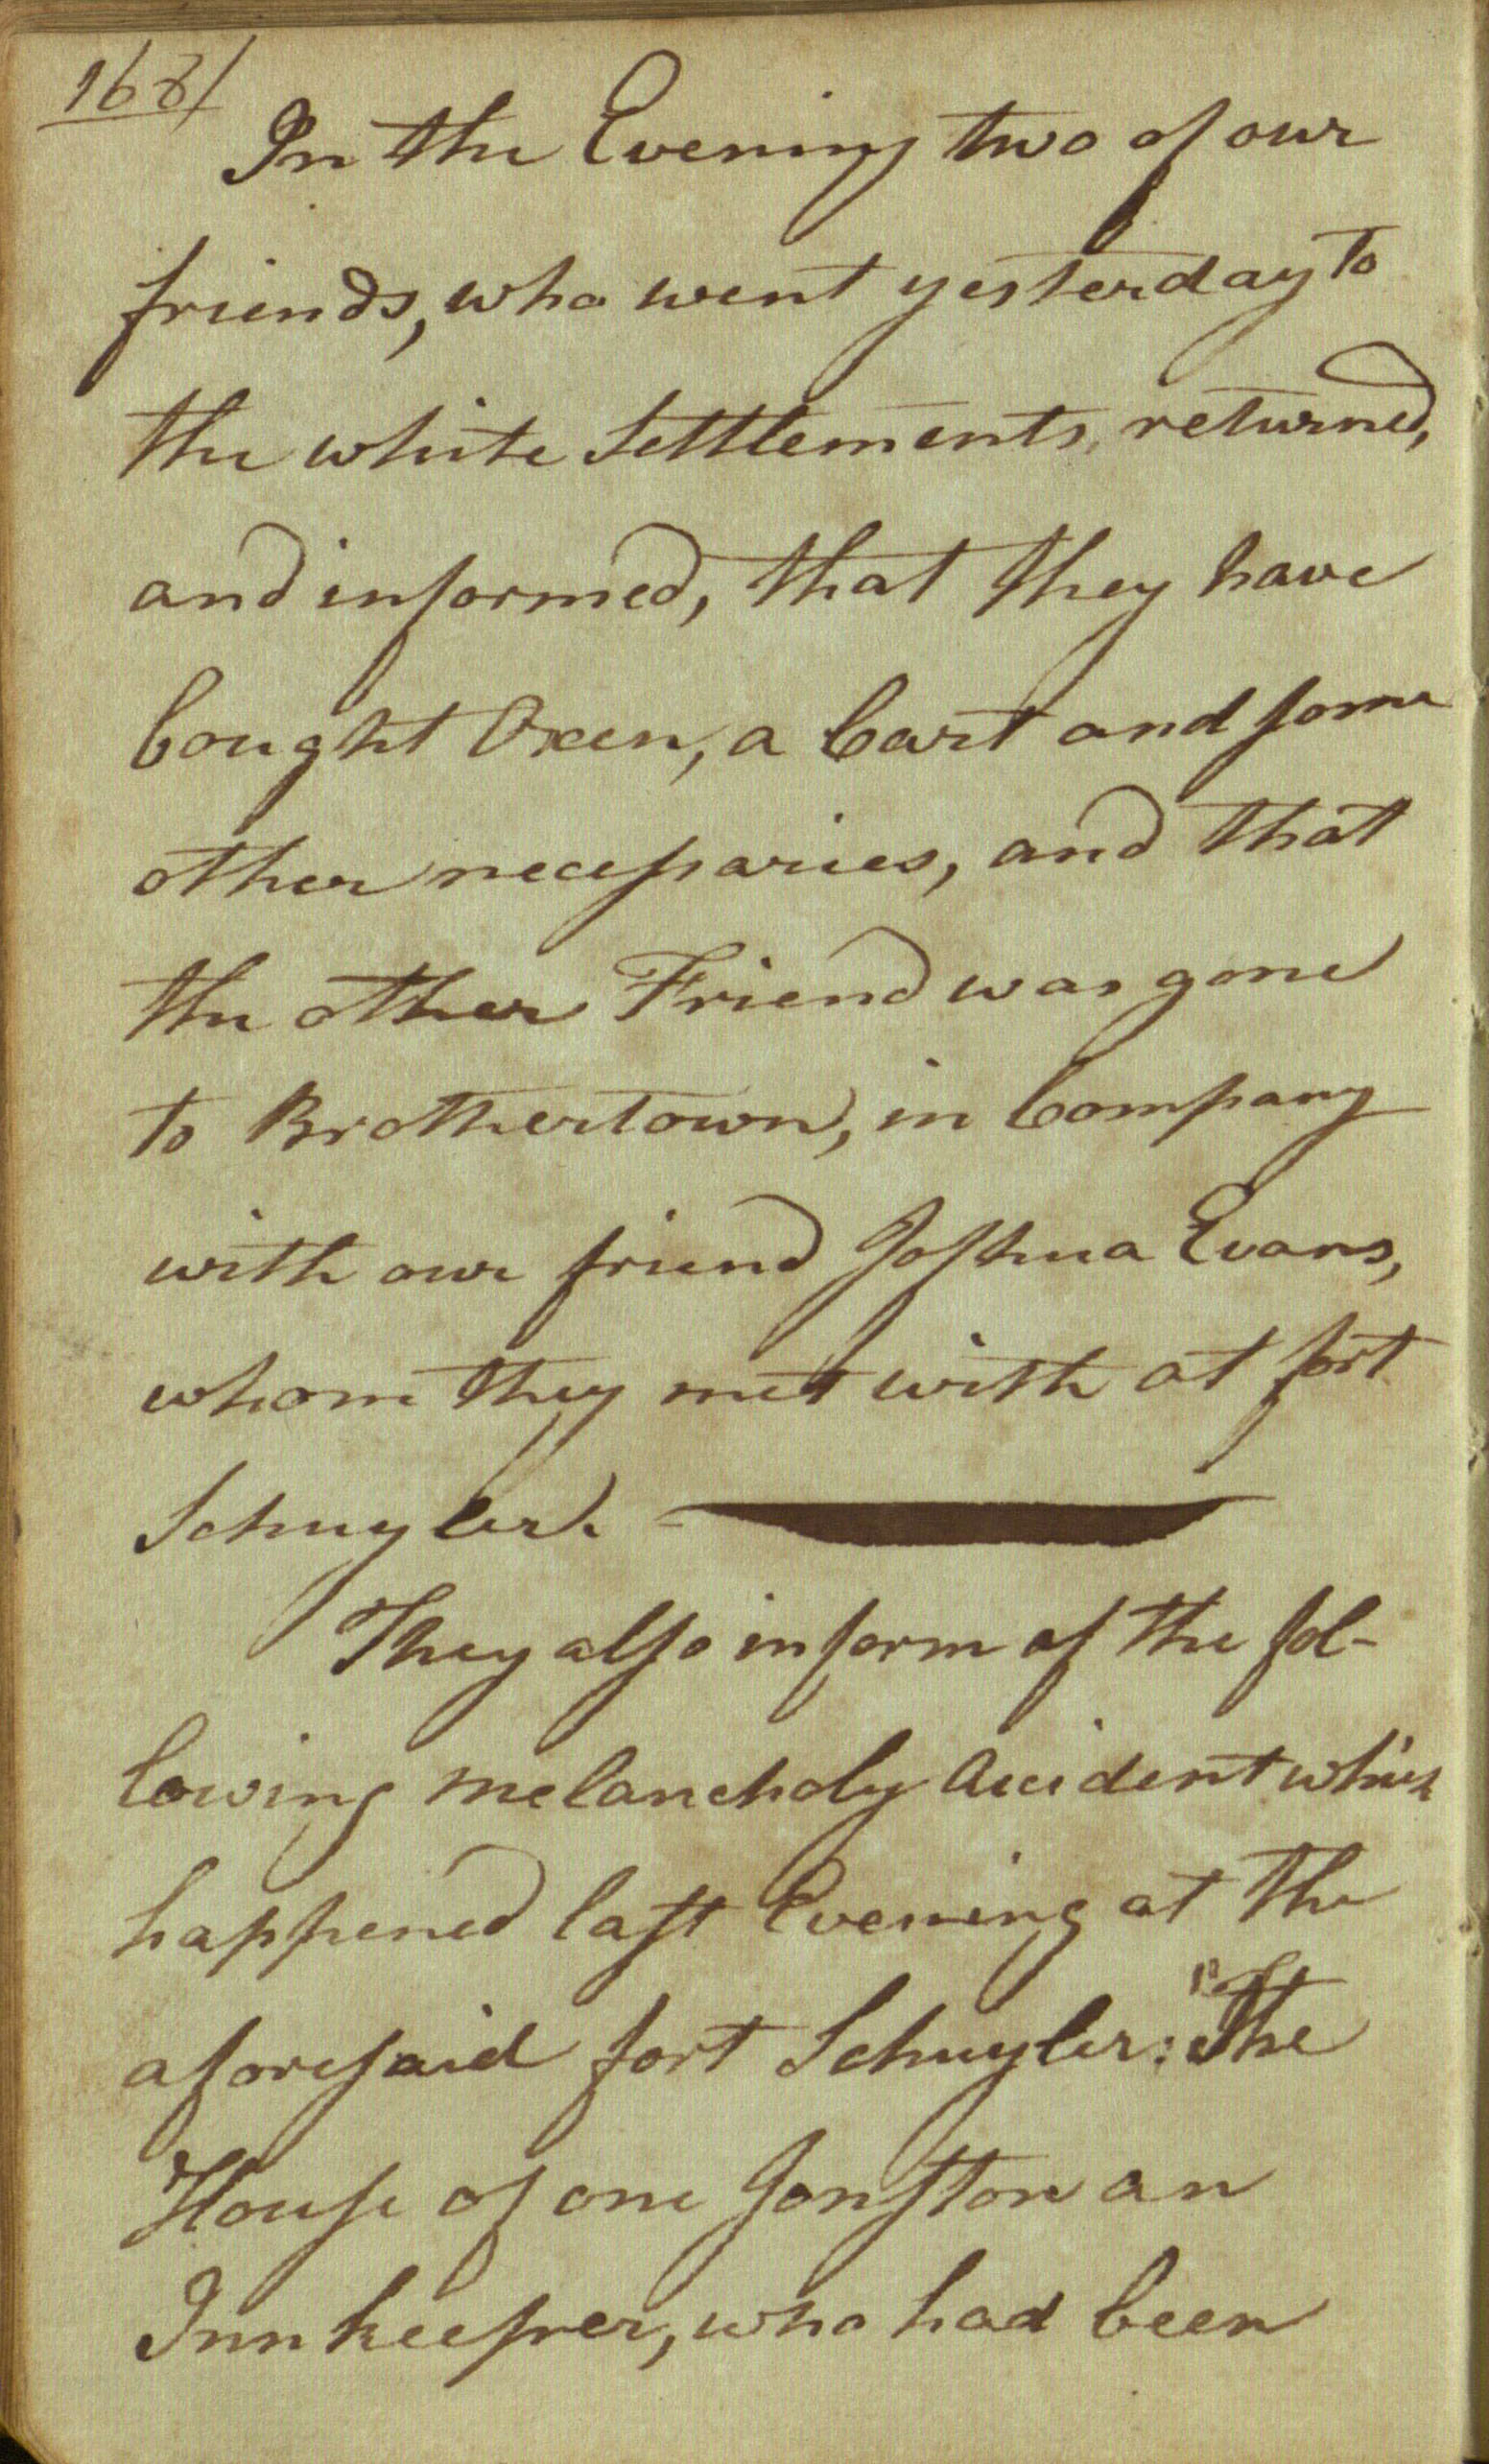 168/
In the Evening two of our
friends, who went yesterday to
the white Settlements, returned,
and informed, that they have
bought Oxen, a Cart and some
other necessaries, and that
the other Friend was gone
to Brothertown, in Company
with our friend Joshua Evans,
whom they met with at fort
Schuyler. -
They also inform of the fol-
lowing melancholy Accident which
happened last Evening at the
aforesaid fort Schuyler: The
House of one Jonston an
Innkeeper, who had been